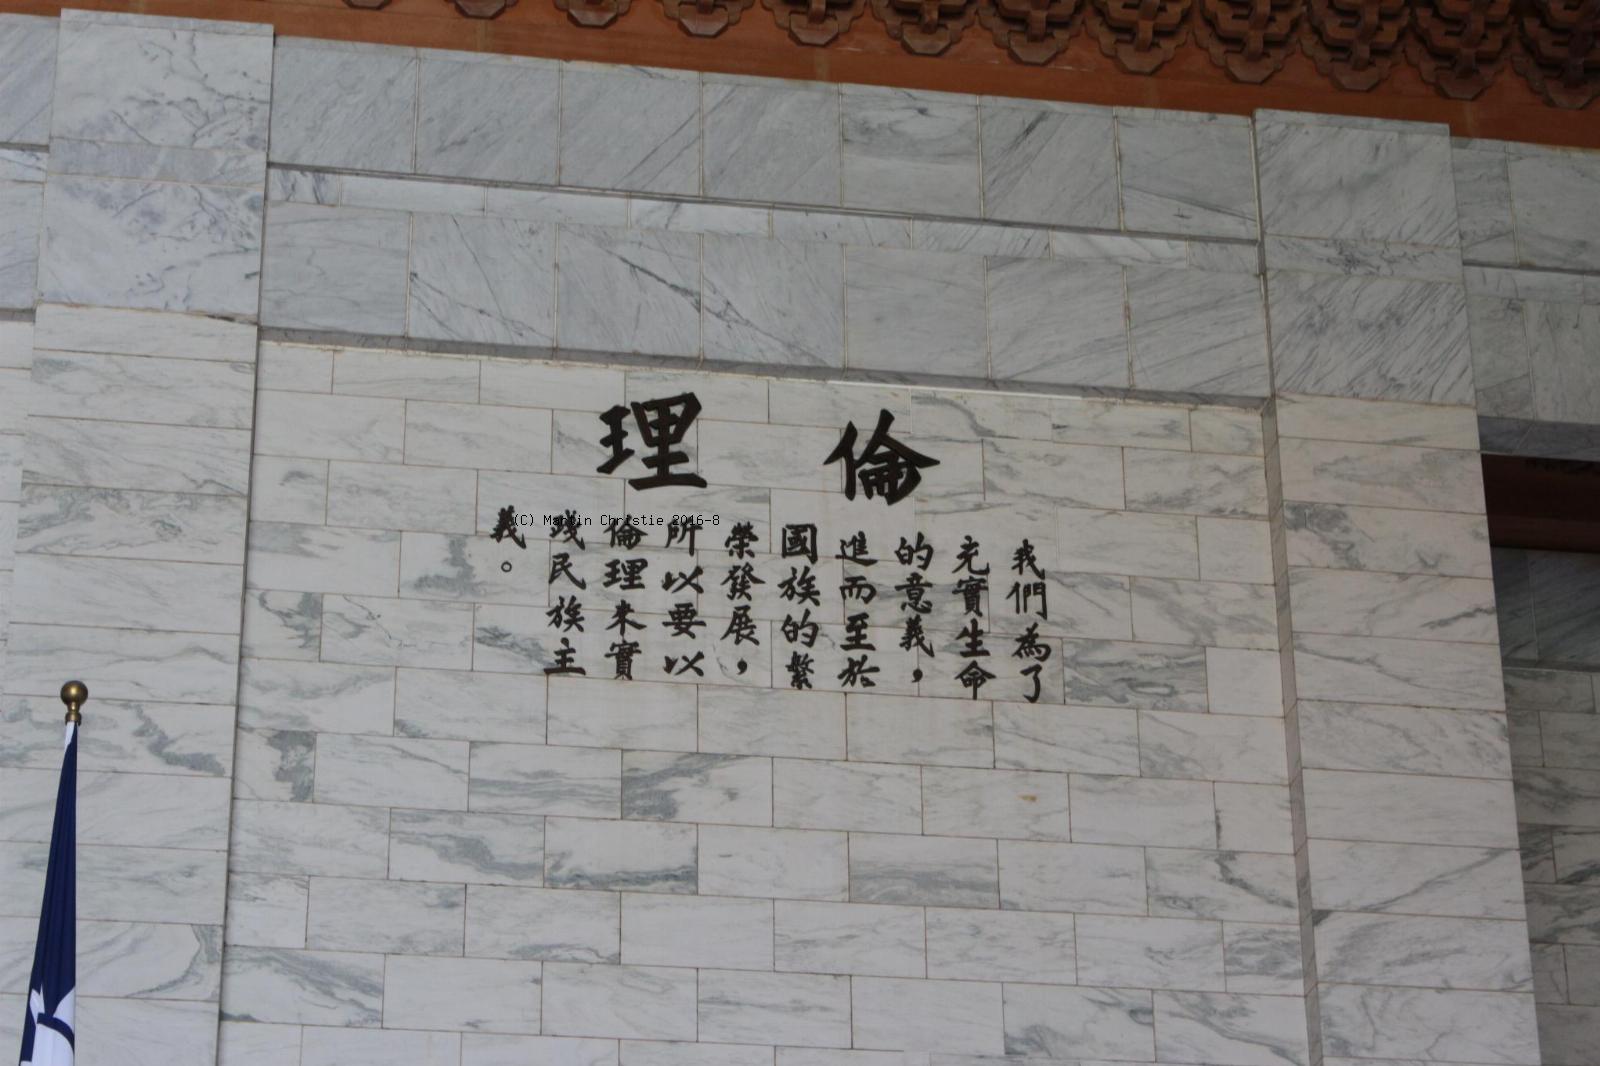 倫理
我們為了
充實生命
的意義，
進而至於
國族的繁
榮發展，
所以要以
倫理來實
踐民族主
義。
(C) Martin Christie 2016-8